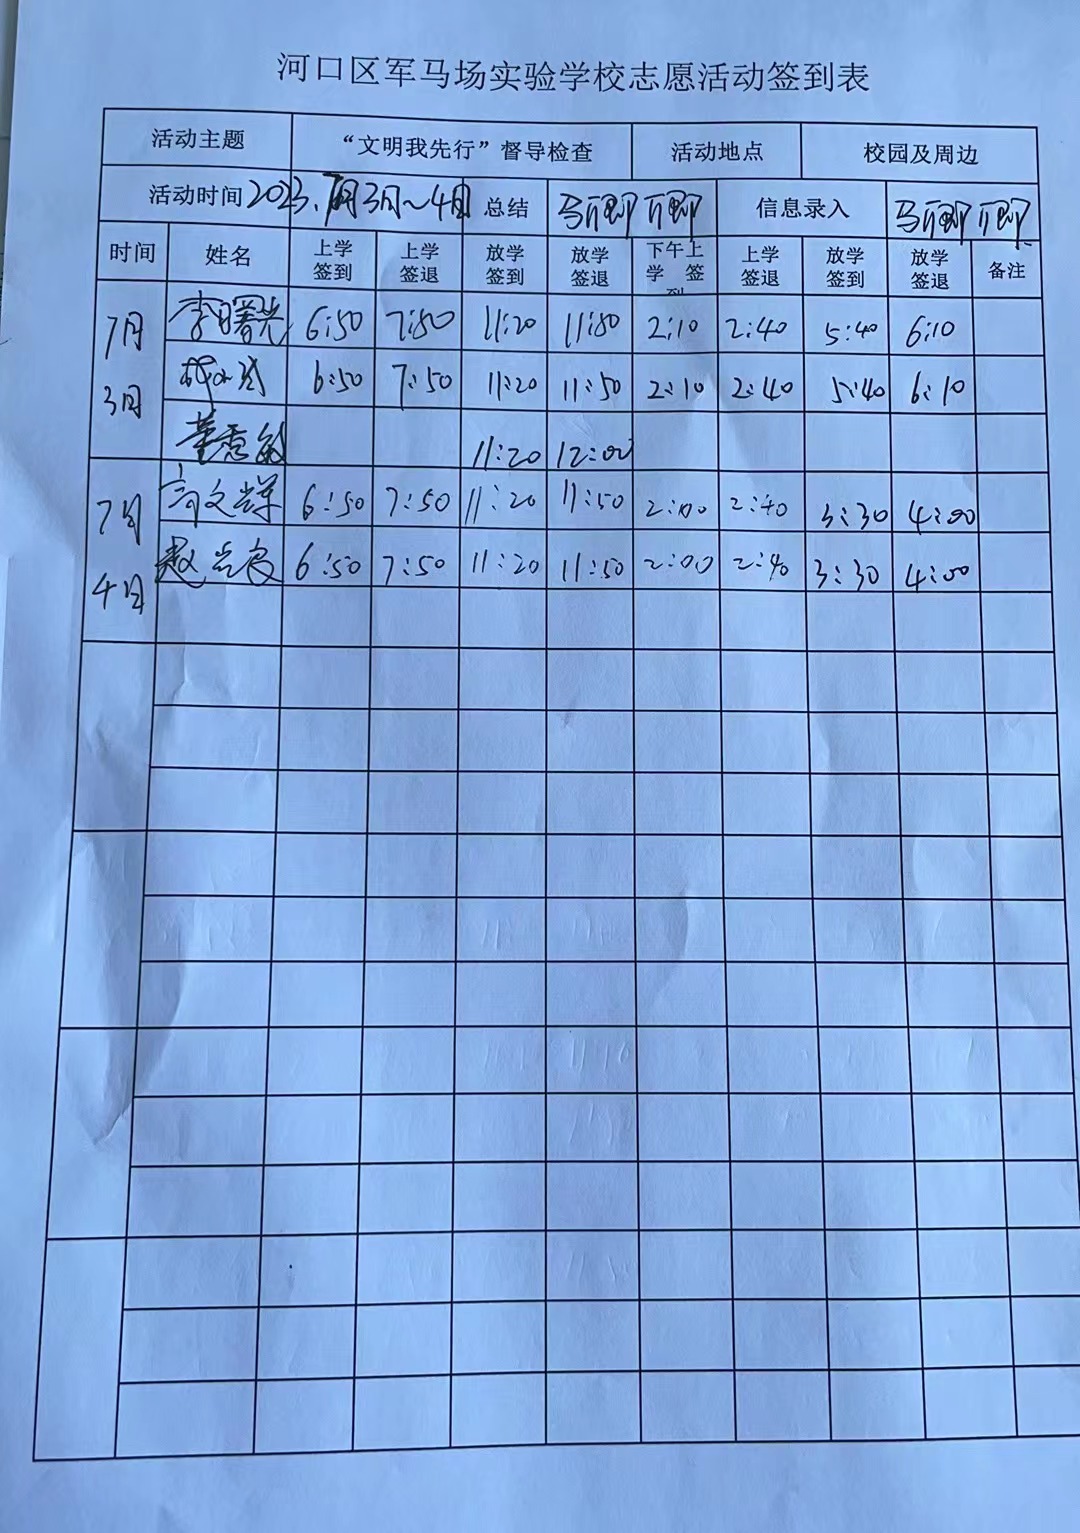 河口区军马场实验学校志愿活动签到表
活动主题 “文明我先行”督导检查 活动地点 校园及周边
活动时间 2023.7月3日~4日 总结 马 信息录入 马
时间 姓名 上学签到 上学签退 放学签到 放学签退 下午上学 签到 上学签退 放学签到 放学签退 备注
7月3日 李曙光 6:50 7:50 11:20 11:50 2:10 2:40 5:40 6:10
6:50 7:50 11:20 11:50 2:10 2:40 5:40 6:10
董秀敏 11:20 12:00
7月4日 高文辉 6:50 7:50 11:20 11:50 2:00 2:40 3:30 4:00
赵 6:50 7:50 11:20 11:50 2:00 2:40 3:30 4:00